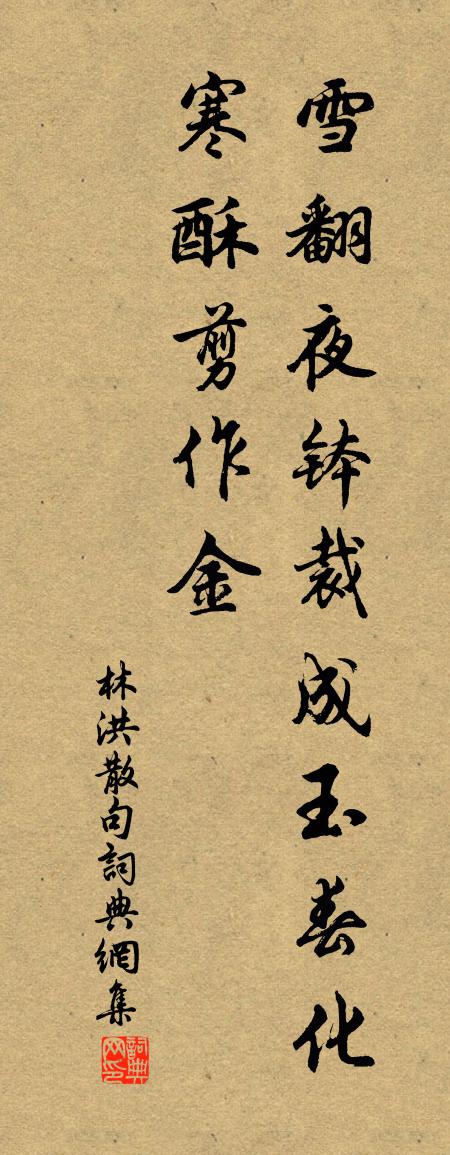 雪翻夜鉢裁成玉春化
寒酥剪作金
林洪散句詞典網集
詞典网印